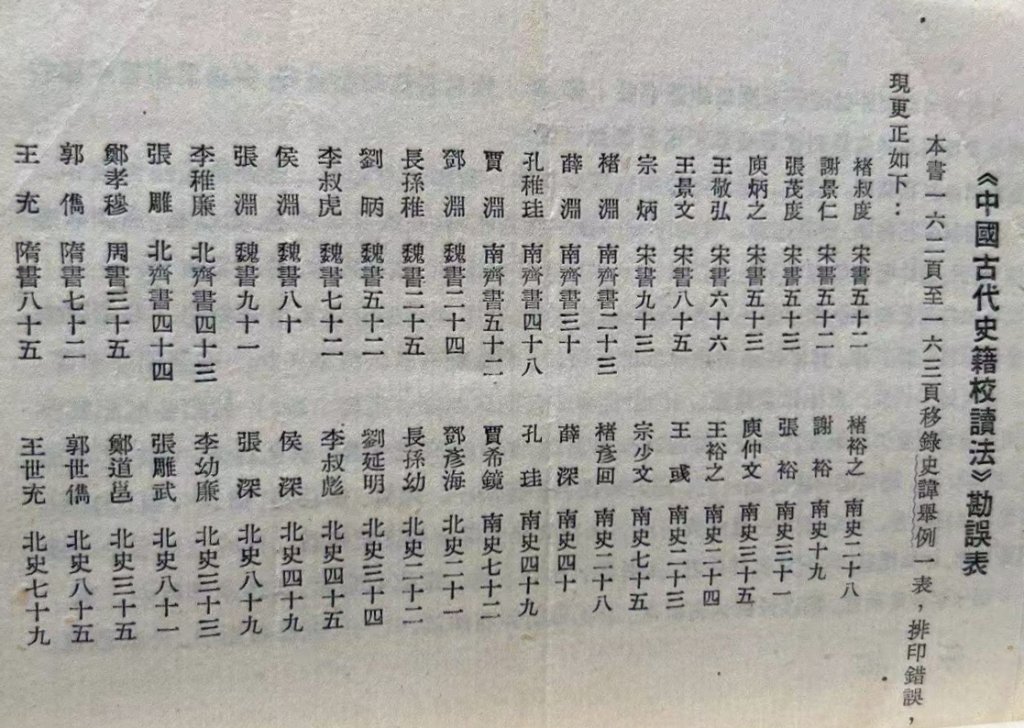 《中國古代史籍校讀法》勘誤表
本書一六二頁至一六三頁移錄史諱舉例一表，排印錯誤，
現更正如下：
褚叔度 宋書五十二 褚裕之 南史二十八
謝景仁 宋書五十二 謝裕 南史十九
張茂度 宋書五十三 張裕 南史三十一
庾炳之 宋書五十三 庾仲文 南史三十五
王敬弘 宋書六十六 王裕之 南史二十四
王景文 宋書八十五 王或 南史二十三
宗炳 宋書九十三 宗少文 南史七十五
褚淵 南齊書二十三 褚彥回 南史二十八
薛淵 南齊書三十 薛深 南史四十
孔稚珪 南齊書四十八 孔珪 南史四十九
賈淵 南齊書五十二 賈希鏡 南史七十二
鄧淵 魏書二十四 鄧彥海 北史二十一
長孫稚 魏書二十五 長孫幼 北史二十二
劉昞 魏書五十二 劉延明 北史三十四
李叔虎 魏書七十二 李叔彪 北史四十五
侯淵 魏書八十 侯深 北史四十九
張淵 魏書九十一 張深 北史八十九
李稚廉 北齊書四十三 李幼廉 北史三十三
張雕 北齊書四十四 張雕武 北史八十一
鄭孝穆 周書三十五 鄭道邕 北史三十五
郭儁 隋書七十二 郭世儁 北史八十五
王充 隋書八十五 王世充 北史七十九